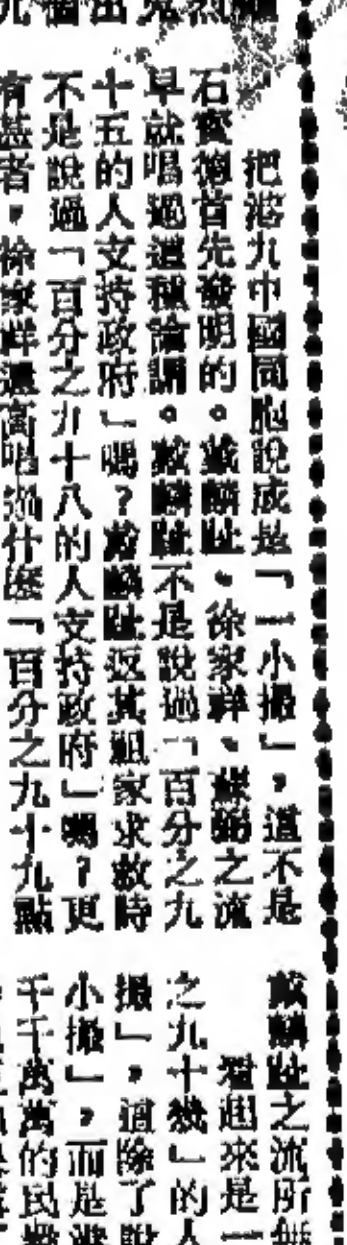 把港九中國同胞說成是「一小撮」，這不是
石寶德首先發明的。戴麟趾、徐家祥、蘇弼之流
早就唱過這種論調。戴麟趾不是說過「百分之九
十五的人支持政府」嗎？戴麟趾返其祖家求救時
不是說過「百分之九十八的人支持政府」嗎？更
有甚者，徐家祥還高唱過什麼「百分之九十九點
戴麟趾之流所
看起來是一
之九十幾」的人
撮」，這除了說
小撮」，而是港
千千萬萬的民